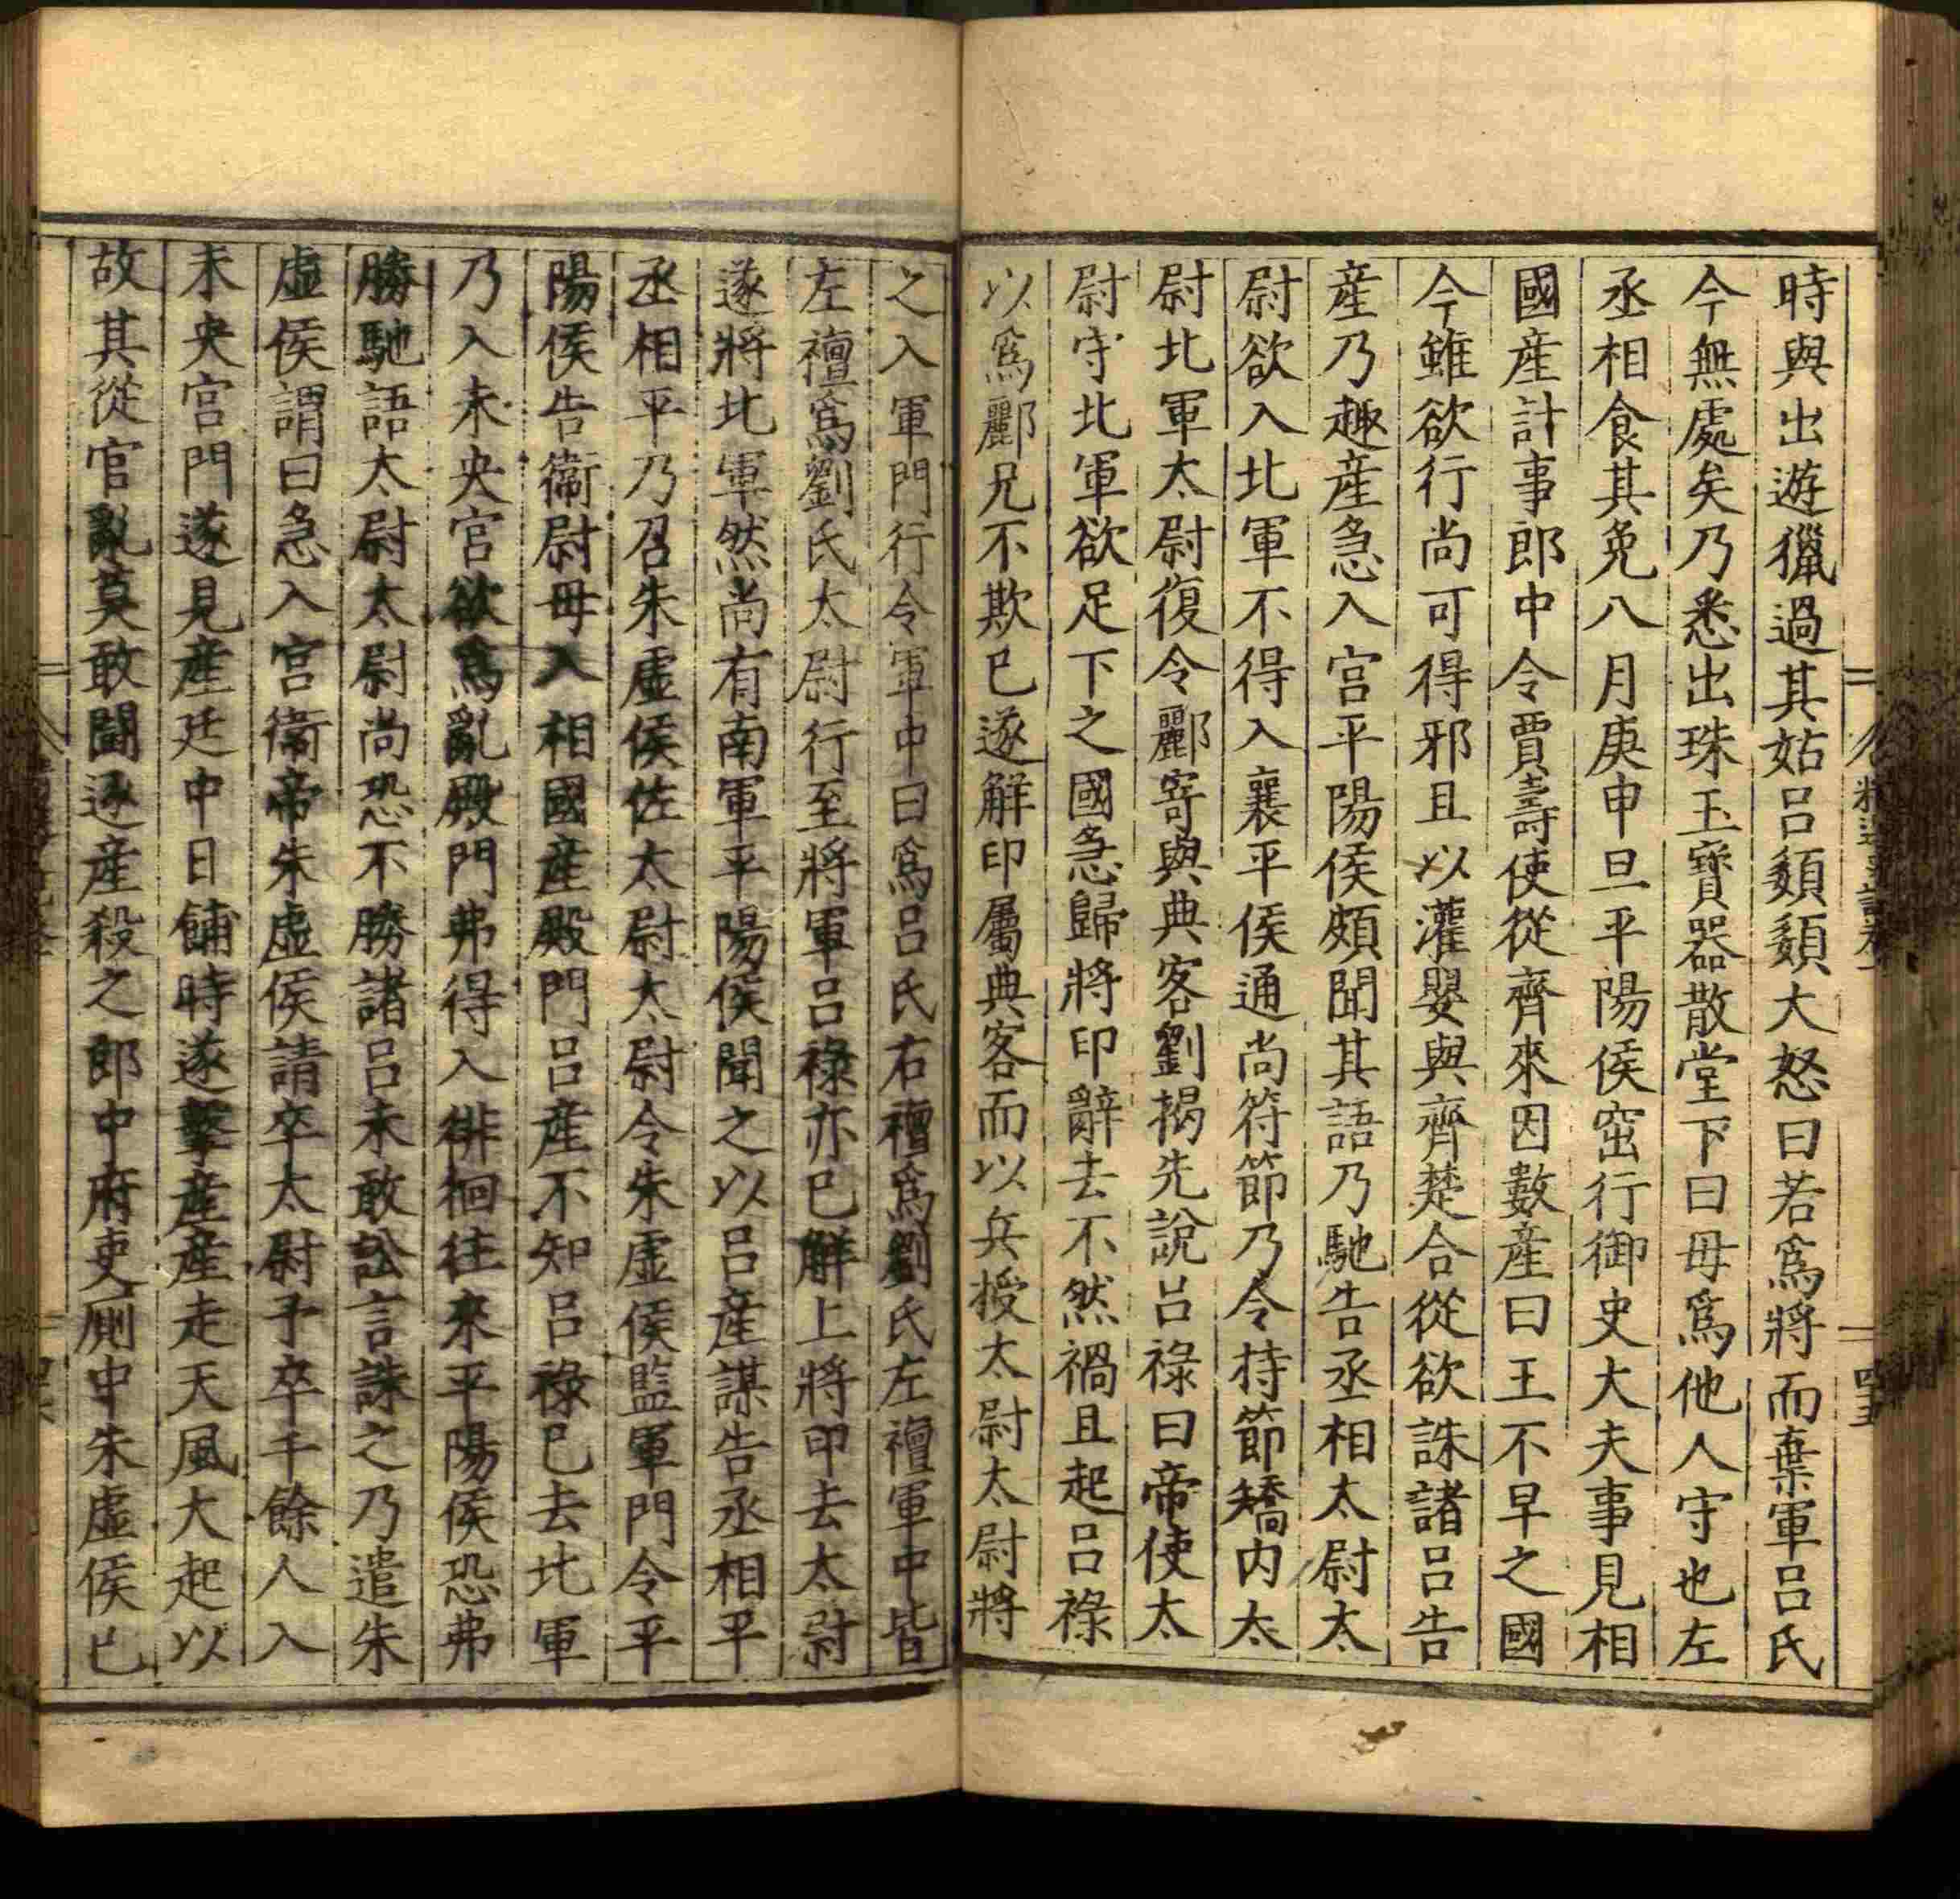 時與出遊獵過其姑呂顉顉大怒曰若爲將而棄軍呂氏
今無處矣乃悉出珠玉寶器散堂下曰毋爲他人守也左
丞相食其免八月庚申旦平陽侯窋行御史大夫事見相
國産計事郎中令賈壽使從齊來因數産曰王不早之國
今雖欲行尚可得邪且以灌嬰與齊楚合從欲誅諸呂告
産乃趣産急入宮平陽侯頗聞其語乃馳告丞相太尉太
尉欲入北軍不得入襄平侯通尚符節乃令持節矯内太
尉北軍太尉復令酈寄與典客劉揭先說呂祿曰帝使太
尉守北軍欲足下之國急歸將印辭去不然禍且起呂祿
以爲酈兄不欺已遂解印屬典客而以兵授太尉太尉將
之入軍門行令軍中曰爲呂氏右襢爲劉氏左襢軍中皆
左襢爲劉氏太尉行至將軍呂祿亦已解上將印去太尉
遂將北軍然尚有南軍平陽侯聞之以呂産謀告丞相平
丞相平乃召朱虛侯佐太尉太尉令朱虛侯監軍門令平
陽侯告衛尉毋入相國産殿門呂産不知呂祿已去北軍
乃入未央宮欲爲亂殿門弗得入徘徊往來平陽侯恐弗
勝馳語太尉太尉尚恐不勝諸呂未敢訟言誅之乃遣朱
虛侯謂曰急入宮衛帝朱虛侯請卒太尉予卒千餘人入
未央宮門遂見産廷中日餔時遂擊産産走天風大起以
故其從官亂莫敢鬭逐産殺之郎中府吏厠中朱虛侯已
四五